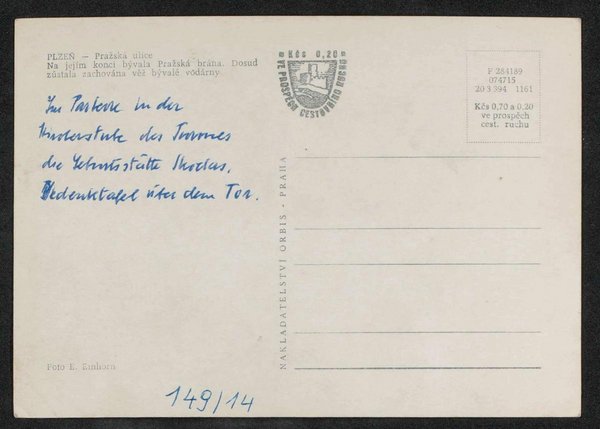 PLZEŇ — Pražská ulice
Na jejím konci bývala Pražská brána. Dosud
zůstala zachována věž bývalé vodárny
Kčs 0,20
VE PROSPĚCH CESTOVNÍHO RUCHU
F 284189
074715
20 3 394 1161
Kčs 0,70 a 0.20
ve prospěch
cest. ruchu
Im Parterre in der
des
die Geburtsstätte Skodas,
Gedenktafel über dem Tor.
NAKLADATELSTVÍ ORBIS - PRAHA
Foto E. Einhorn
149/14